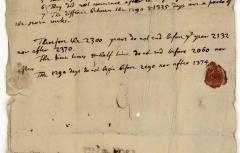 6 They did not commence after the
7 The difference between the 1290 & 1335 days are a parts of
the seven weeks.
Therefore the 2300 years do not end before ye year 2132
nor after 2370.
The time times & half time do not end before 2060 nor
after
The 1290 days do not begin before 2090 nor after 1374.